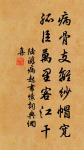 病骨支離紗帽寬
孤臣萬里客江干
陸游病起書懷詞典網
集